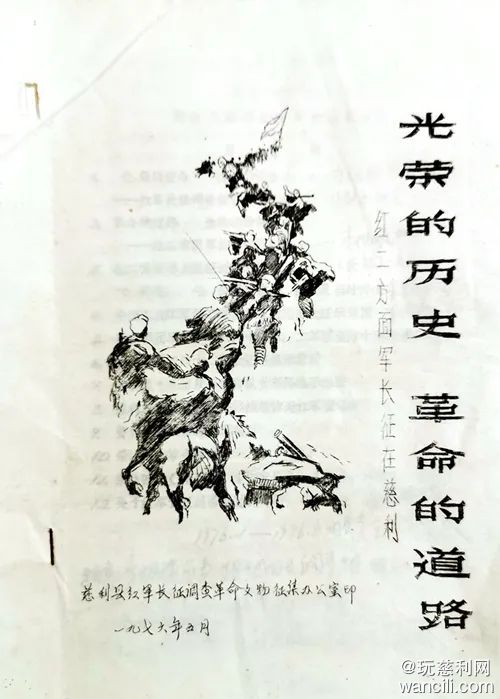 光荣的历史 革命的道路
红二方面军长征在慈利
慈利县红军长征调查革命文物征集办公室印
一九七六年五月
@玩慈利网
wancili.com